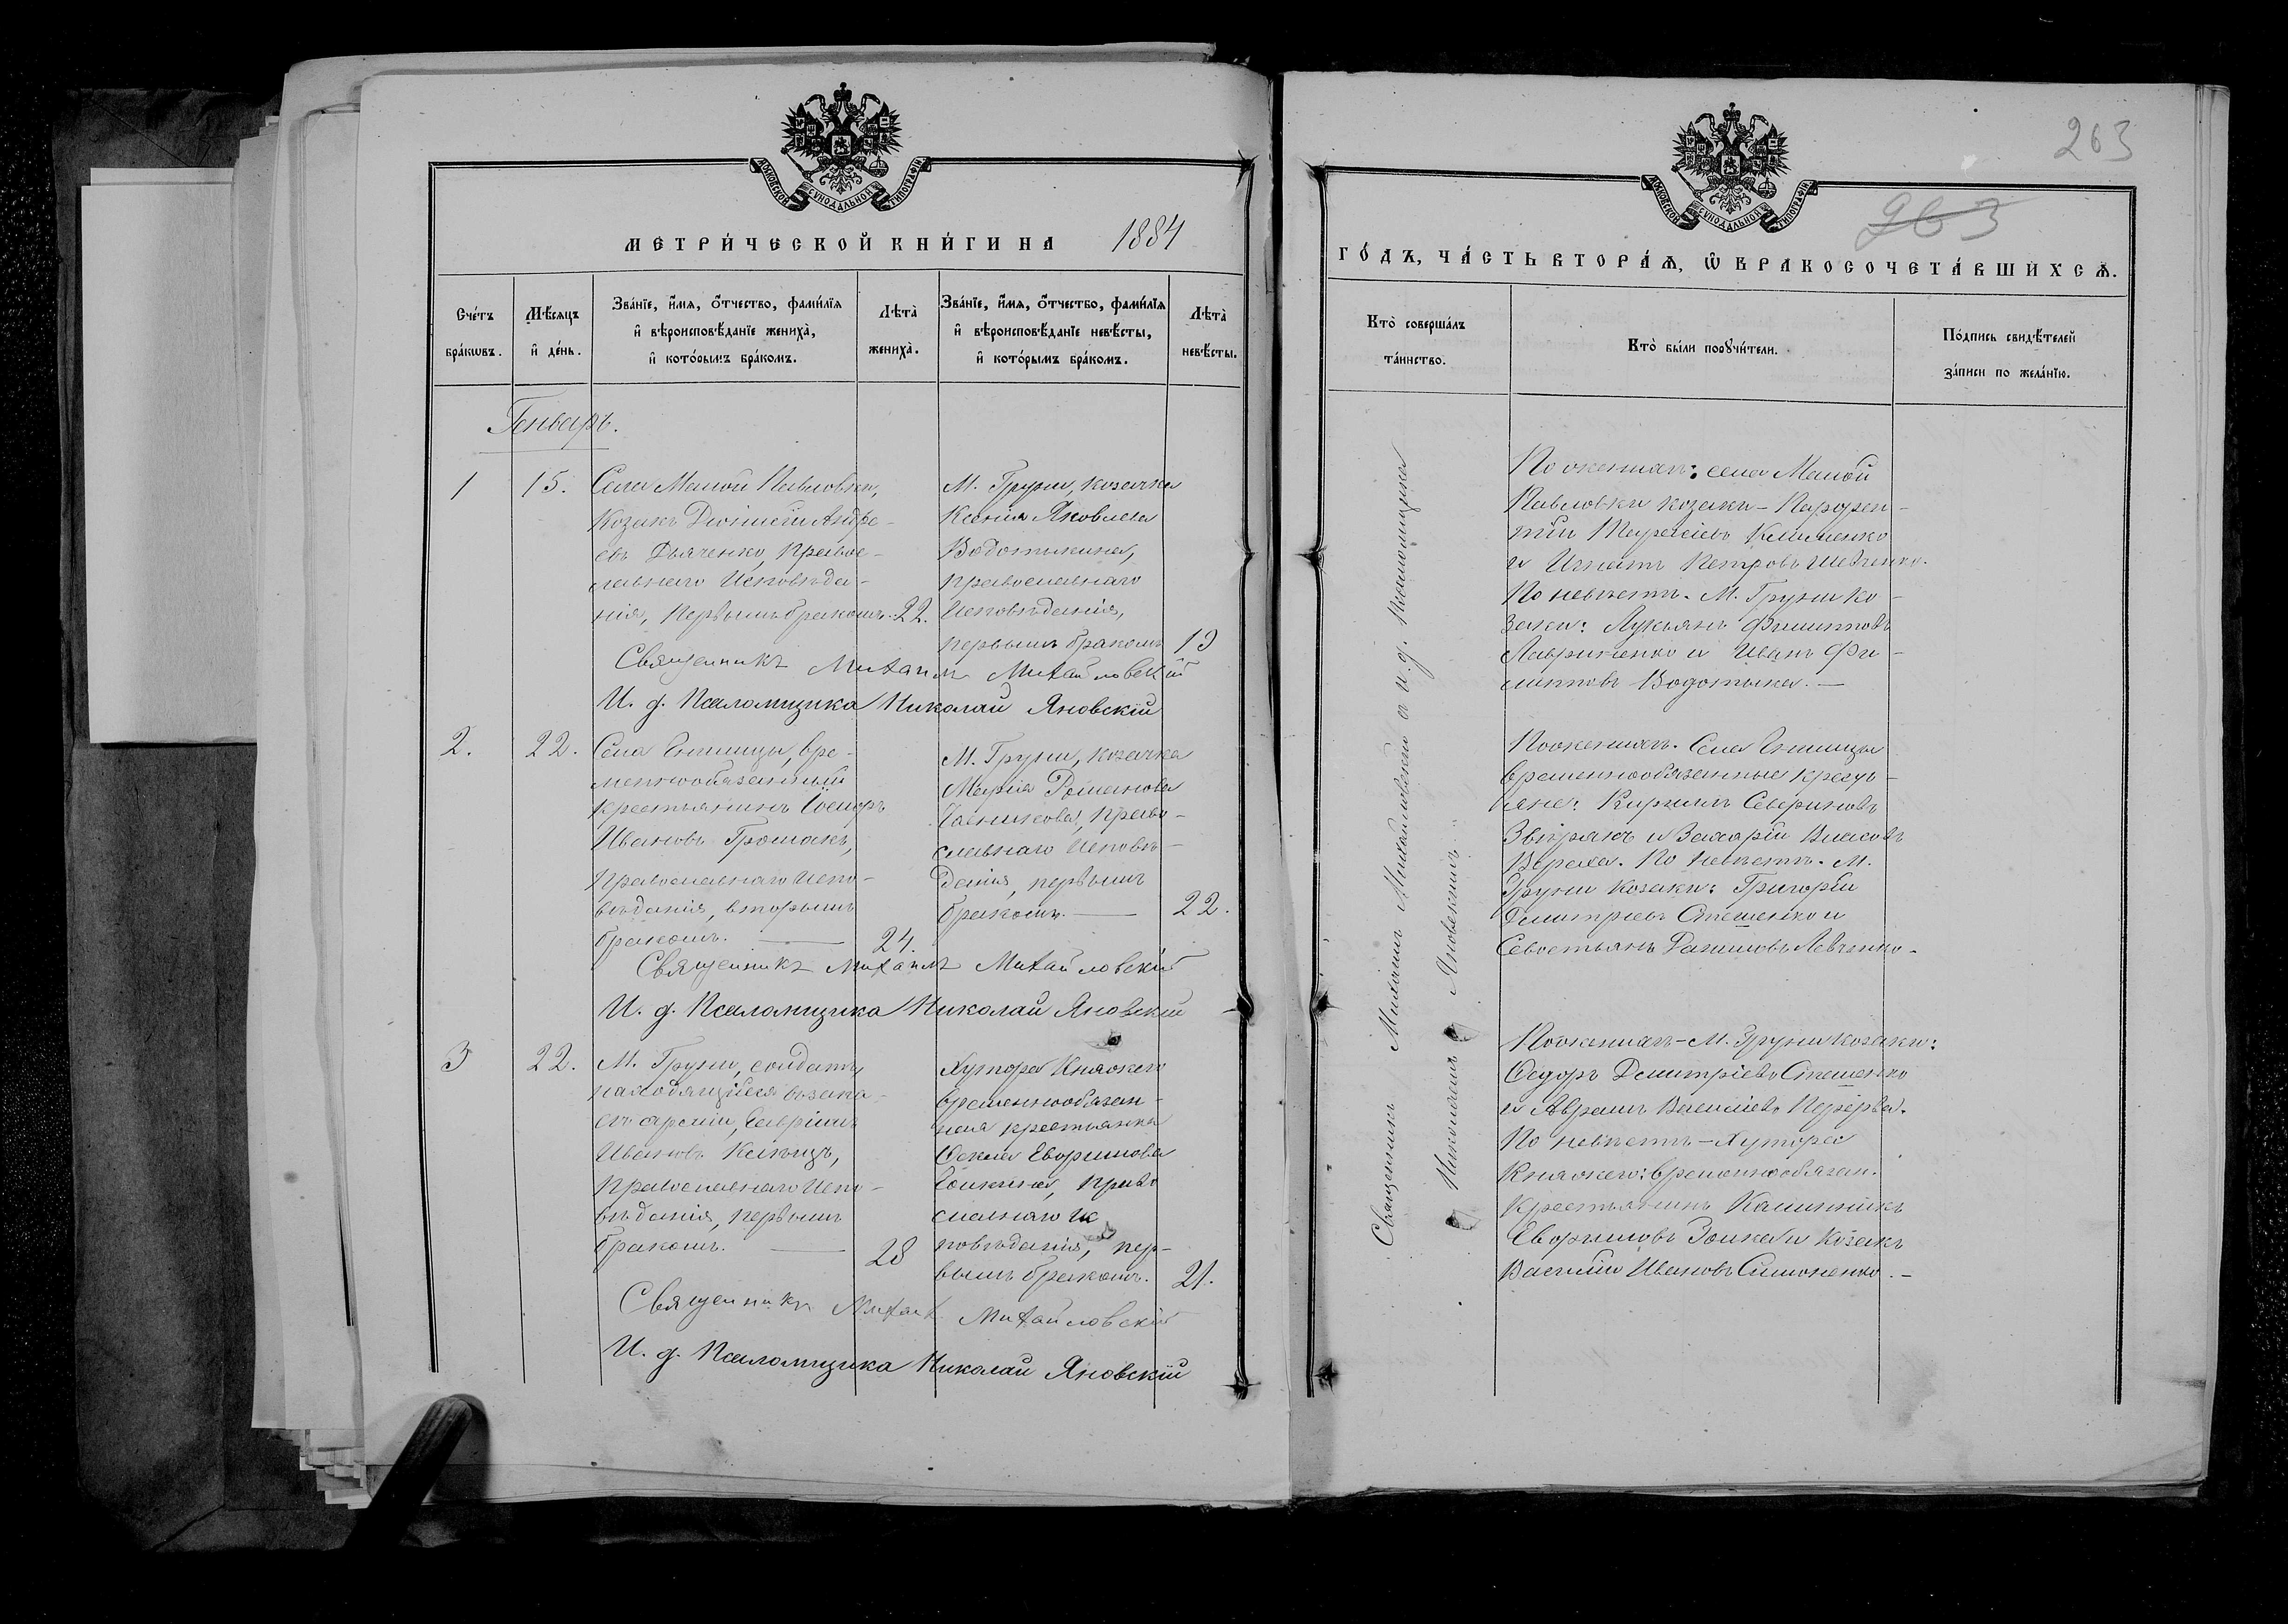 МОСКОВСКОЙ СУНОДАЛЬНОЙ ТИПОГРАФІИ
МЕТРИ́ЧЕСКОЙ КНИ́ГИ НА 1884
Сче́тъ бра́кѡвъ.
Мѣ́сяцъ и҆ де́нь.
Зва́нїе, и҆́мя, ѻ҆́тчество, фами́лїя
и҆ вѣроисповѣ́данїе жениха̀,
и҆ кото́рымъ бра́комъ.
Лѣта̀
жениха̀.
Зва́нїе, и҆́мя, ѻ҆́тчество, фами́лїя
и҆ вѣроисповѣ́данїе невѣ́сты,
и҆ кото́рымъ бра́комъ.
Лѣта̀
невѣ́сты.
Генварь.
1
15.
Села Малой Павловки,
Козакъ Діонисій Андре-
евъ Дьяченко, право-
славнаго исповѣда-
нія, первымъ бракомъ. 22.
М. Груни, козачка
Ксенія Яковлева
Водотыкина,
православнаго
исповѣданія,
первымъ бракомъ 19
Священникъ Михаилъ Михайловскій
И. д. Псаломщика Николай Яновскій
2.
22.
Села вре-
меннообязанный
крестьянинъ
Ивановъ Громакъ,
православнаго испо-
вѣданія, вторымъ
бракомъ. — 24.
М. Груни, козачка
Марія Романова
право-
славнаго исповѣ-
данія, первымъ
бракомъ. — 22.
Священникъ Михаилъ Михайловскій
И. д. Псаломщика Николай Яновскій
3
22.
М. Груни, солдатъ
находящійся въ запа-
сѣ арміи, Гавріилъ
Ивановъ
православнаго испо-
вѣданія, первымъ
бракомъ. — 28
Хутора Княжего
временнообязан-
ная крестьянка
Ѳекла
право
славнаго ис
повѣданія, пер-
вымъ бракомъ. 21.
Священникъ Михаил Михайловскій
И. д. Псаломщика Николай Яновскій
263
МОСКОВСКОЙ СУНОДАЛЬНОЙ ТИПОГРАФІИ
263
ГО́ДЪ, ЧА́СТЬ ВТОРА́Ѧ, Ѡ҆ БРАКОСОЧЕТА́ВШИХСѦ.
Кто̀ соверша́лъ
та́инство.
Кто̀ бы́ли порꙋчи́тели.
По́дпись свидѣ́телей
за́писи по жела́нїю.
Священникъ Михаилъ Михайловскій и и. д. Псаломщика
Николай Яновскій
По женихѣ: села Малой
Павловки козаки – Парфен-
тій Тарасіевъ Клименко
и Игнатъ Петровъ Шевченко.
По невѣстѣ. М. Груни ко-
заки: Лукьянъ Филиповъ
Лавриненко и Иванъ Фи-
липповъ Водотыка. —
По женихѣ. Села
временнообязанные кресть-
яне: Кириллъ Севериновъ
и Захарій Власовъ
По невѣстѣ. М.
Груни козаки: Григорій
Димитріевъ Стешенко и
Севостьянъ Левченко.
По женихѣ – М. Груни козаки:
Ѳедоръ Димитріевъ Стешенко
и Аврамъ Василіевъ Перерва.
По невѣстѣ – Хутора
Княжего: временнообязан.
крестьянинъ Калинникъ
и козакъ
Василій Ивановъ Симоненко. —